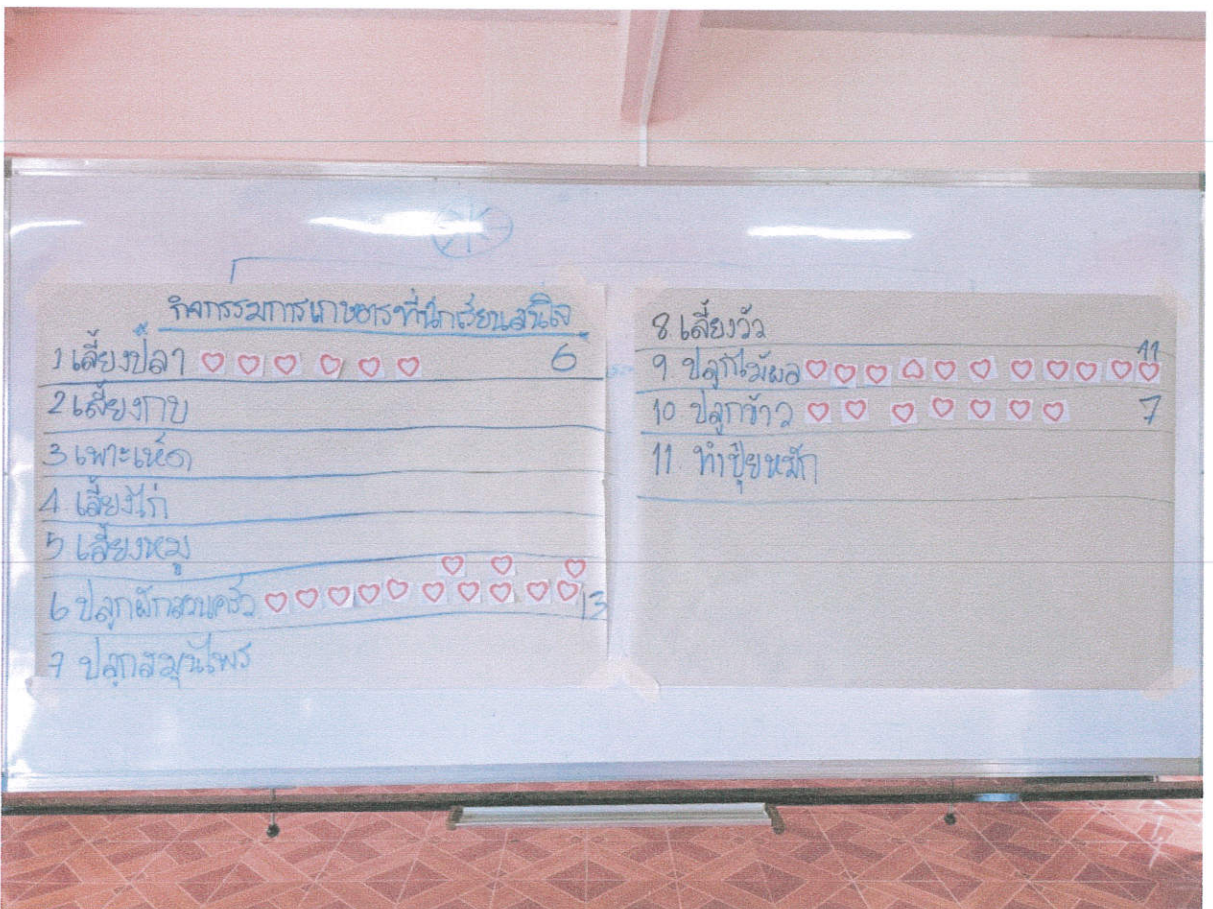 กิจกรรมการเกษตรที่นักเรียนสนใจ
1 เลี้ยงปลา ♡ ♡ ♡ ♡ ♡ ♡ 6
2 เลี้ยงกบ
3 เพาะเห็ด
4. เลี้ยงไก่
5 เลี้ยงหมู
6 ปลูกผักสวนครัว ♡ ♡ ♡ ♡ ♡ ♡ ♡ ♡ ♡ ♡ ♡ ♡ ♡ 13
7 ปลูกสมุนไพร
8 เลี้ยงวัว
9 ปลูกไม้ผล ♡ ♡ ♡ ♡ ♡ ♡ ♡ ♡ ♡ ♡ ♡ 11
10 ปลูกข้าว ♡ ♡ ♡ ♡ ♡ ♡ ♡ 7
11. ทำปุ๋ยหมัก